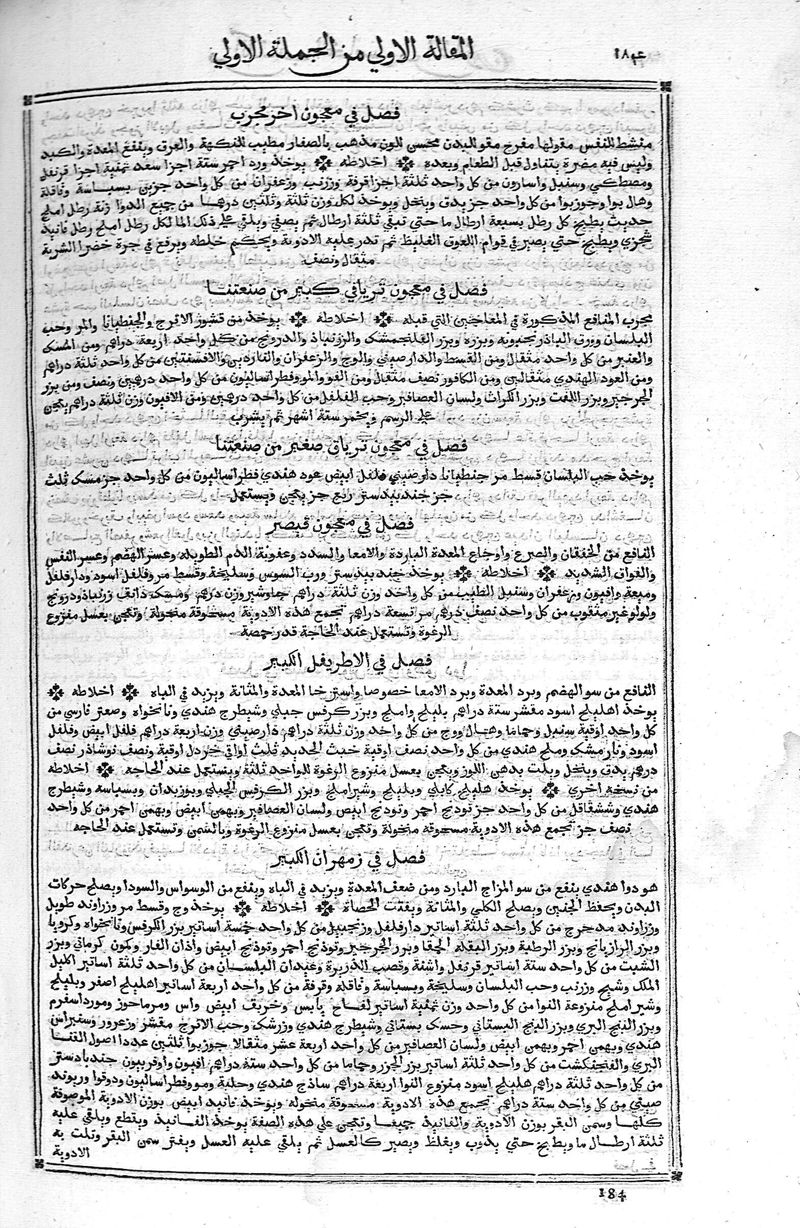 المقالة الاولي من الجملة الاولي
١٨٤
فصل في معجون اخر مجرب
منشط للنفس مقولها مفرح مقو للبدن محسن اللون مذهب بالصفار مطيب للنكهة والعرق وينفع المعدة والكبد
وليس فيه مضرة يتناول قبل الطعام وبعده ❊ اخلاطه ❊ يوخذ ورد احمر ستة اجزا سعد ثمنية اجزا قرنفل
ومصطكي وسنبل واسارون من كل واحد ثلثة اجزا قرفة وزرنب وزعفران من كل واحد جزين بسباسة وقاقلة
وهال بوا وجوزبوا من كل واحد جز يدق وينخل ويوخذ لكل وزن ثلثة وثلثين درهما من جميع الدوا زنة رطل املج
حديث يطبخ كل رطل بسبعة ارطال ما حتي تبقي ثلثة ارطال ثم يصفي ويلقي علي ذلك الما لكل رطل املج رطل فانيد
شجزي ويطبخ حتي يصير في قوام اللعوق الغليظ ثم تذر عليه الادوية ويحكم خلطه ويرفع في جرة خضرا الشربة
مثقال ونصف
فصل في معجون ترياقي كبير من صنعتنا
مجرب المنافع المذكورة في المعاجين التي قبله ❊ اخلاطه ❊ يوخذ من قشور الاترج والجنطيانا والمر وحب
البلسان وورق الباذرنجبويه وبزره وبزر الفلنجمشك والزرنباذ والدرونج من كل واحد اربعة دراهم ومن المسك
والعنبر من كل واحد مثقال ومن القسط والدارصيني والوج والزعفران والناردين والافسنتين من كل واحد ثلثة دراهم
ومن العود الهندي مثقالين ومن الكافور نصف مثقال ومن الفو والمو وفطراساليون من كل واحد درهمين ونصف ومن بزر
الجرجير وبزر اللفت وبزر الكراث ولسان العصافير وحب الفلفل من كل واحد درهمين ومن الافيون وزن ثلثة دراهم يعجن
علي الرسم ويخمر ستة اشهر ثم يشرب
فصل في معجون ترياق صغير من صنعتنا
يوخذ حب البلسان قسط مر جنطيانا دارصيني فلفل ابيض عود هندي فطراساليون من كل واحد جز مسك ثلث
جز جندبيدستر ربع جز يعجن ويستعمل
فصل في معجون قيصر
النافع من الخفقان والصرع واوجاع المعدة الباردة والامعا والسدد وعفونة الدم الطويلة وعسر الهضم وعسر النفس
والفواق الشديد ❊ اخلاطه ❊ يوخذ جندبيدستر ورب السوس وسليخة وقسط مر وفلفل اسود ودارفلفل
وميعة وافيون وزعفران وسنبل الطيب من كل واحد وزن ثلثة دراهم جاوشير وزن درهم ومسك دانق زرنباذ ودرونج
ولولو غير مثقوب من كل واحد نصف درهم مر تسعة دراهم تجمع هذه الادوية مسحوقة منخولة وتعجن بعسل منزوع
الرغوة وتستعمل عند الحاجة قدر حمصة
فصل في الاطريفل الكبير
النافع من سو الهضم وبرد المعدة وبرد الامعا خصوصا واسترخا المعدة والمثانة ويزيد في الباه ❊ اخلاطه ❊
يوخذ اهليلج اسود مقشر ستة دراهم بليلج واملج وبزر كرفس جبلي وشيطرج هندي ونانخواه وصعتر فارسي من
كل واحد اوقية سنبل وحماما وهال ووج من كل واحد وزن ثلثة دراهم دارصيني وزن اربعة دراهم فلفل ابيض وفلفل
اسود ونارمشك وملح هندي من كل واحد نصف اوقية خبث الحديد ثلث اواق خردل اوقية ونصف نوشاذر نصف
درهم يدق وينخل ويلت بدهن اللوز ويعجن بعسل منزوع الرغوة للواحد ثلثة ويستعمل عند الحاجه ❊ اخلاطه
من نسخة اخري ❊ يوخذ هليلج كابلي وبليلج وشيراملج وبزر الكرفس الجبلي وبوزيدان وبسباسة وشيطرج
هندي وششقاقل من كل واحد جز تودنج احمر وتودنج ابيض ولسان العصافير وبهمن ابيض وبهمن احمر من كل واحد
نصف جز تجمع هذه الادوية مسحوقة منخولة وتعجن بعسل منزوع الرغوة وبالسمن وتستعمل عند الحاجه
فصل في زمهران الكبير
هو دوا هندي ينفع من سو المزاج البارد ومن ضعف المعدة ويزيد في الباه وينفع من الوسواس والسودا ويصلح حركات
البدن ويحفظ الجنين ويصلح الكلي والمثانة ويفتت الحصاة ❊ اخلاطه ❊ يوخذ وج وقسط مر وزراوند طويل
وزراوند مدحرج من كل واحد ثلثة اساتير دارفلفل وزنجبيل من كل واحد خمسة اساتير بزر الكرفس ونانخواه وكرويا
وبزر الرازيانج وبزر الرطبة وبزر البقلة الحمقا وبزر الجرجير وتوذنج احمر وتوذنج ابيض واذان الفار وكمون كرماني وبزر
الشبت من كل واحد ستة اساتير قرنفل واشنة وقصب الذريرة وعيدان البلسان من كل واحد ثلثة اساتير اكليل
الملك وشيح وزرنب وحب البلسان وسليخة وبسباسة وقاقلة وقرفة من كل واحد اربعة اساتير اهليلج اصفر وبليلج
وشيراملج منزوعة النوا من كل واحد وزن ثمنية اساتير لفاح يابس وخربق ابيض واس ومرماحوز ومورداسفرم
وبزر البنج البري وبزر البنج البستاني وحسك بستاني وشيطرج هندي وزرشك وحب الاترج مقشر وزعرور وسفيراس
هندي وبهمن احمر وبهمن ابيض ولسان العصافير من كل واحد اربعة عشر مثقالا جوزبوا ثلثين عددا اصول القثا
البري والفنجنكشت من كل واحد ثلثة اساتير بزر الجزر وحماما من كل واحد ستة دراهم افيون واوفربيون جندبادستر
من كل واحد ثلثة دراهم هليلج اسود منزوع النوا اربعة دراهم ساذج هندي وحلبة ومو وفطراساليون ودوقوا وريوند
صيني من كل واحد ستة دراهم تجمع هذه الادوية مسحوقة منخولة ويوخذ فانيد ابيض بوزن الادوية الموصوفة
كلها وسمن البقر بوزن الادوية والفانيد جميعا وتعجن علي هذه الصفة يوخذ الفانيد ويقطع ويلقي عليه
ثلثة ارطال ما ويطبخ حتي يذوب ويغلظ ويصير كالعسل ثم يلقي عليه العسل ويفتر سمن البقر وتلت به
الادوية
184